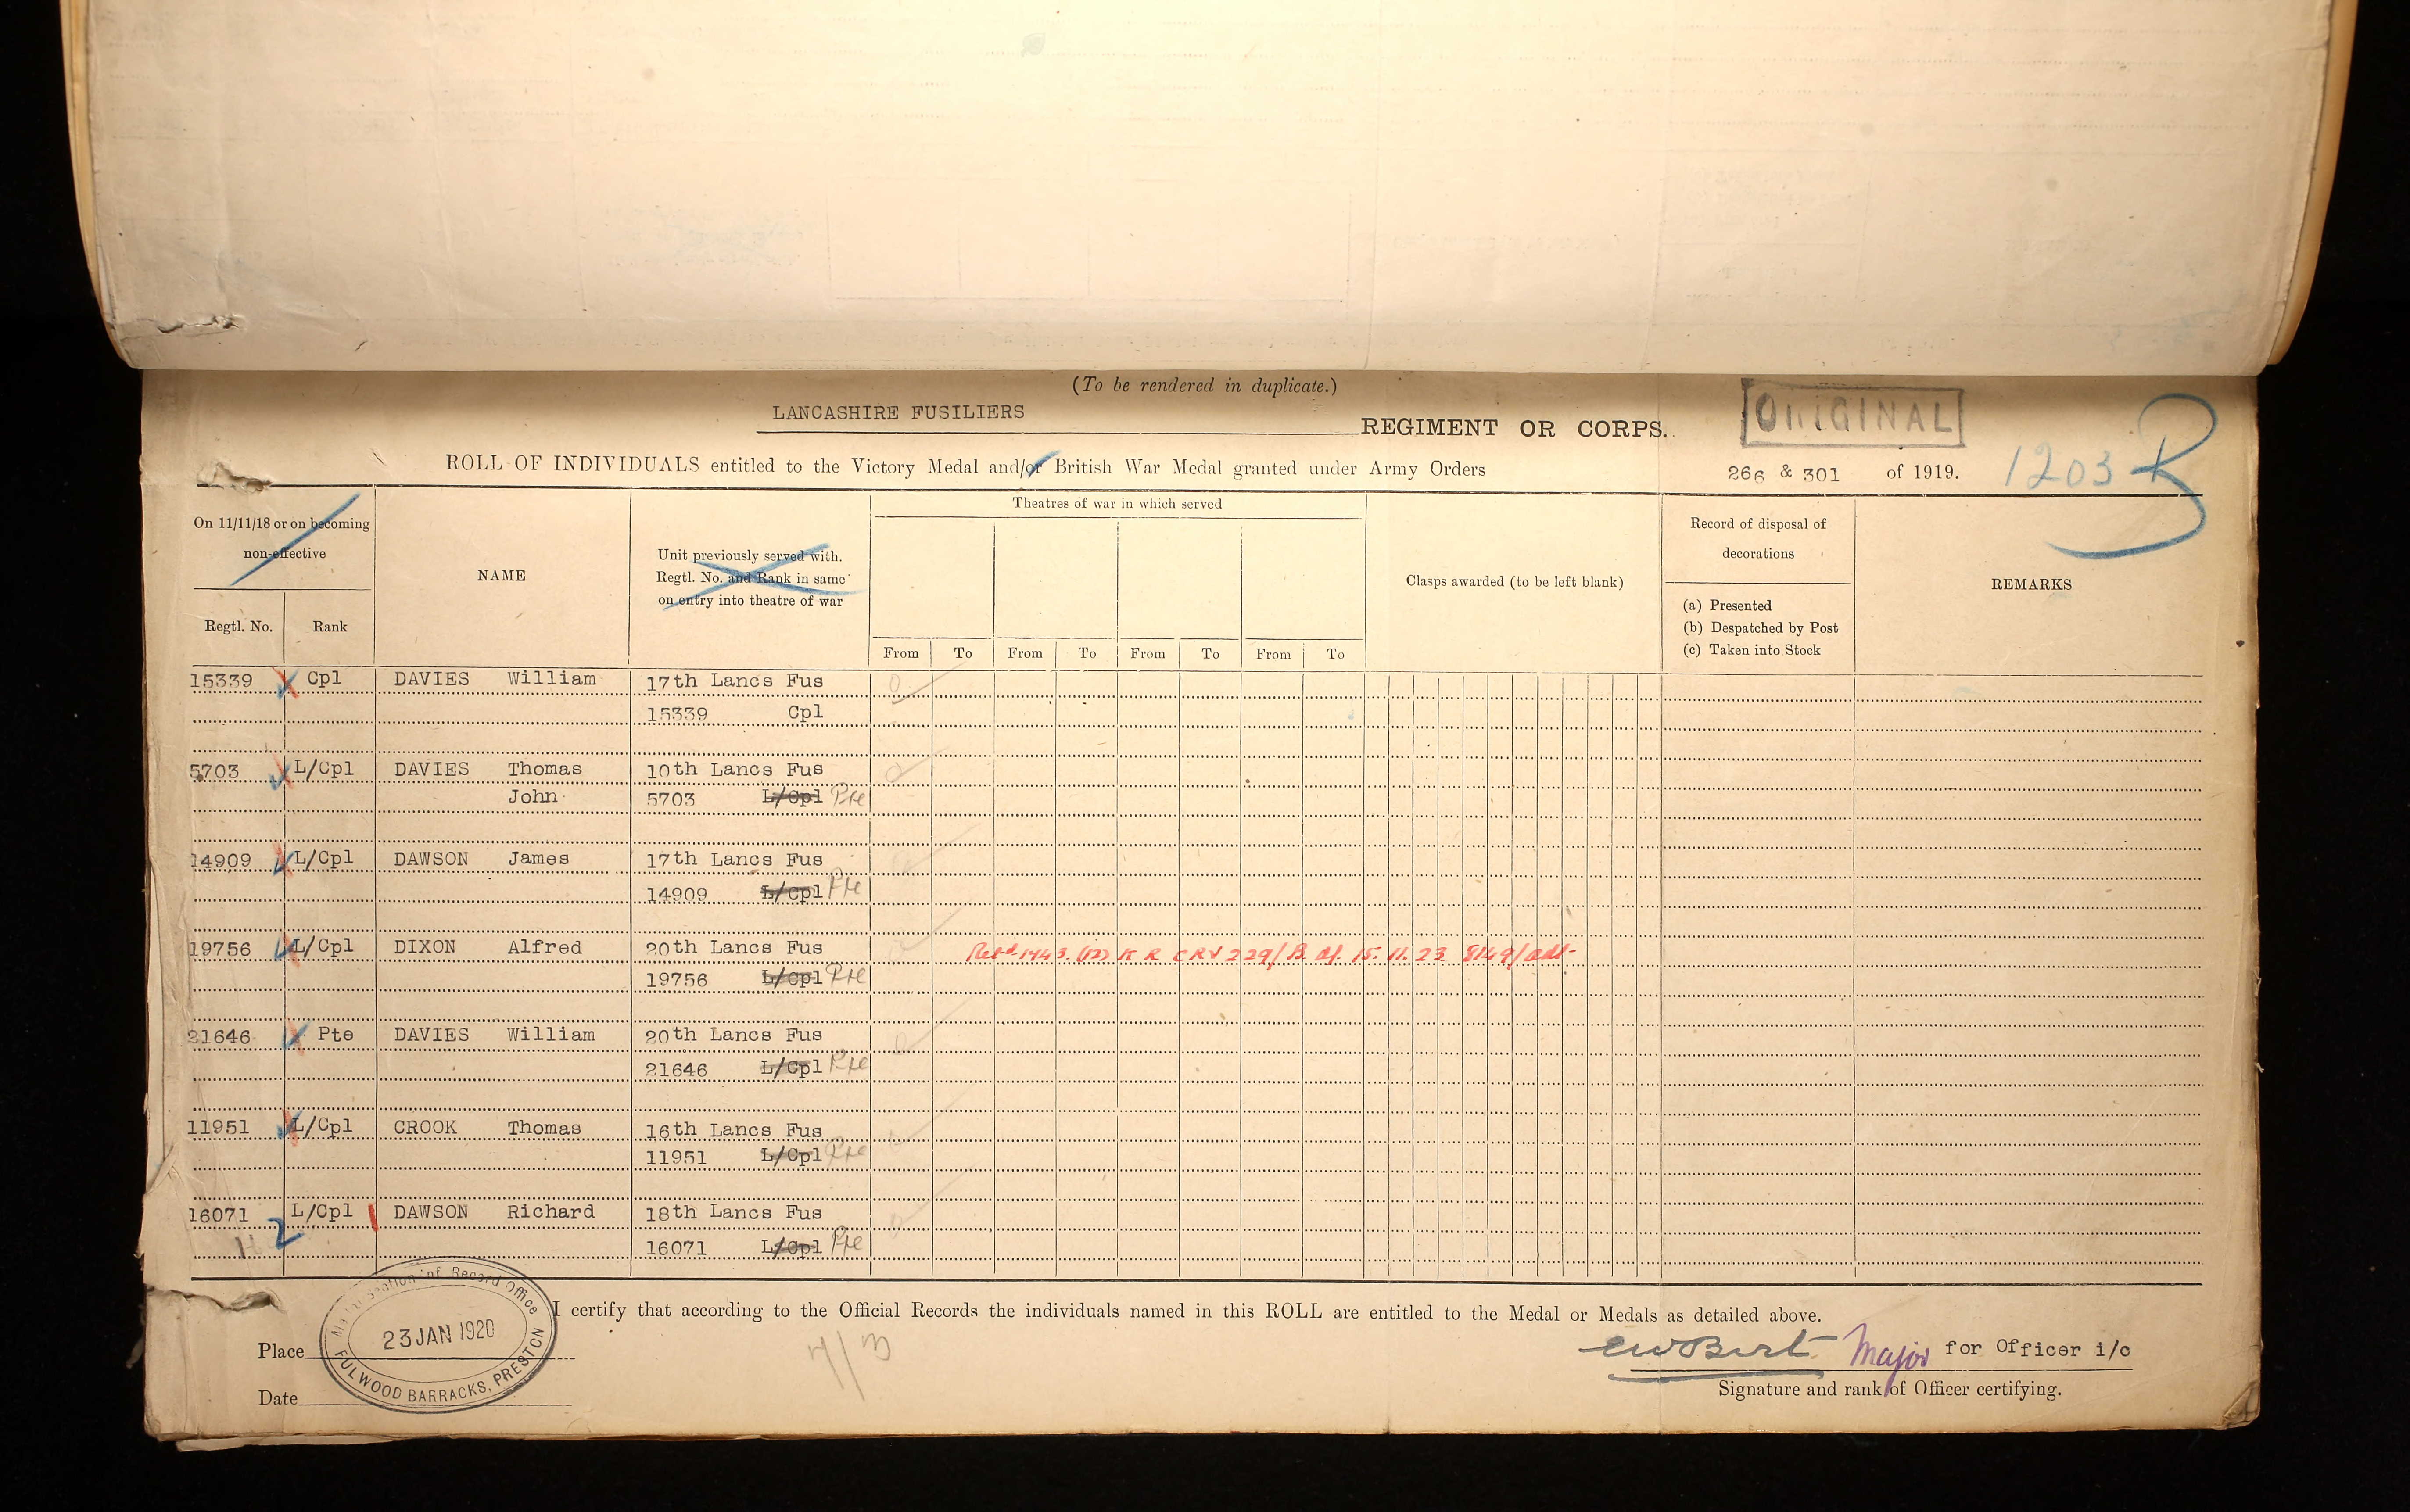 (To be rendered in duplicate.)
LANCASHIRE FUSILIERS REGIMENT OR CORPS.
ORIGINAL
ROLL OF INDIVIDUALS entitled to the Victory Medal and/or British War Medal granted under Army Orders 266 & 301 of 1919. 1203 B
On 11/11/18 or on becoming non-effective
Regtl. No. Rank
NAME
Unit previously served with.
Regtl. No. and Rank in same
on entry into theatre of war
Theatres of war in which served
From To From To From To From To
Clasps awarded (to be left blank)
Record of disposal of
decorations
(a) Presented
(b) Despatched by Post
(c) Taken into Stock
REMARKS
15339 Cpl DAVIES William 17th Lancs Fus
15339 Cpl
5703 L/Cpl DAVIES Thomas 10th Lancs Fus
John 5703 L/Cpl Pte
14909 L/Cpl DAWSON James 17th Lancs Fus
14909 L/Cpl Pte
19756 L/Cpl DIXON Alfred 20th Lancs Fus 1943 (12) K R CRV 229/B d/ 15.11.23 8149/adt
19756 L/Cpl Pte
21646 Pte DAVIES William 20th Lancs Fus
21646 L/Cpl Pte
11951 L/Cpl CROOK Thomas 16th Lancs Fus
11951 L/Cpl Pte
16071 L/Cpl DAWSON Richard 18th Lancs Fus
2
16071 L/Cpl Pte
I certify that according to the Official Records the individuals named in this ROLL are entitled to the Medal or Medals as detailed above.
Section of Record Office
23 JAN 1920
FULWOOD BARRACKS, PRESTON
Place
Date
Major for Officer i/c
Signature and rank of Officer certifying.